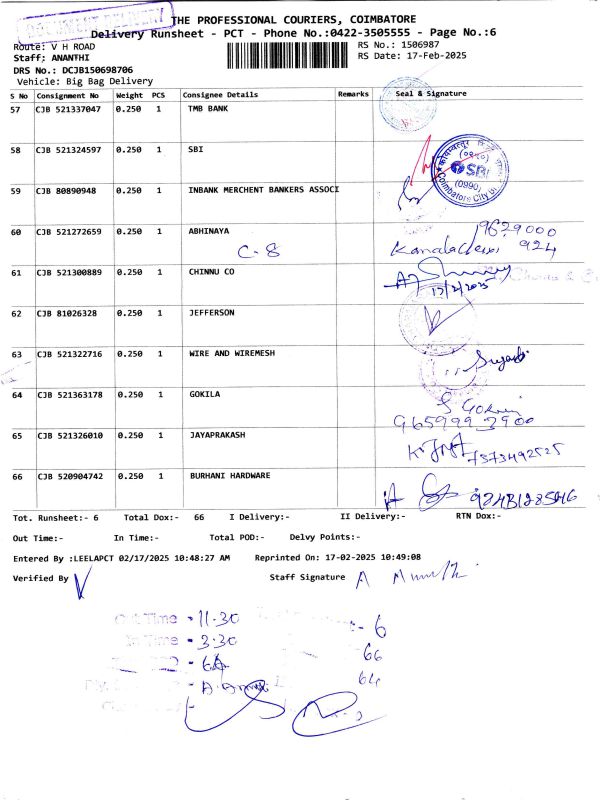 DOCUMENT DELIVERY
THE PROFESSIONAL COURIERS, COIMBATORE
Delivery Runsheet - PCT - Phone No.:0422-3505555 - Page No.:6
Route: V H ROAD
RS No.: 1506987
Staff: ANANTHI
RS Date: 17-Feb-2025
DRS No.: DCJB150698706
Vehicle: Big Bag Delivery
S No Consignment No Weight PCS Consignee Details Remarks Seal & Signature
57 CJB 521337047 0.250 1 TMB BANK
58 CJB 521324597 0.250 1 SBI
SBI
(0990)
Coimbatore City
59 CJB 80890948 0.250 1 INBANK MERCHENT BANKERS ASSOCI
60 CJB 521272659 0.250 1 ABHINAYA
9629000
C-8
924
61 CJB 521300889 0.250 1 CHINNU CO
17/2/2025
62 CJB 81026328 0.250 1 JEFFERSON
63 CJB 521322716 0.250 1 WIRE AND WIREMESH
64 CJB 521363178 0.250 1 GOKILA
65 CJB 521326010 0.250 1 JAYAPRAKASH
7373492525
66 CJB 520904742 0.250 1 BURHANI HARDWARE
Tot. Runsheet:- 6 Total Dox:- 66 I Delivery:- II Delivery:- RTN Dox:-
Out Time:- In Time:- Total POD:- Delvy Points:-
Entered By :LEELAPCT 02/17/2025 10:48:27 AM Reprinted On: 17-02-2025 10:49:08
Verified By Staff Signature
Out Time - 11-30
- 6
In Time - 3-30
66
64